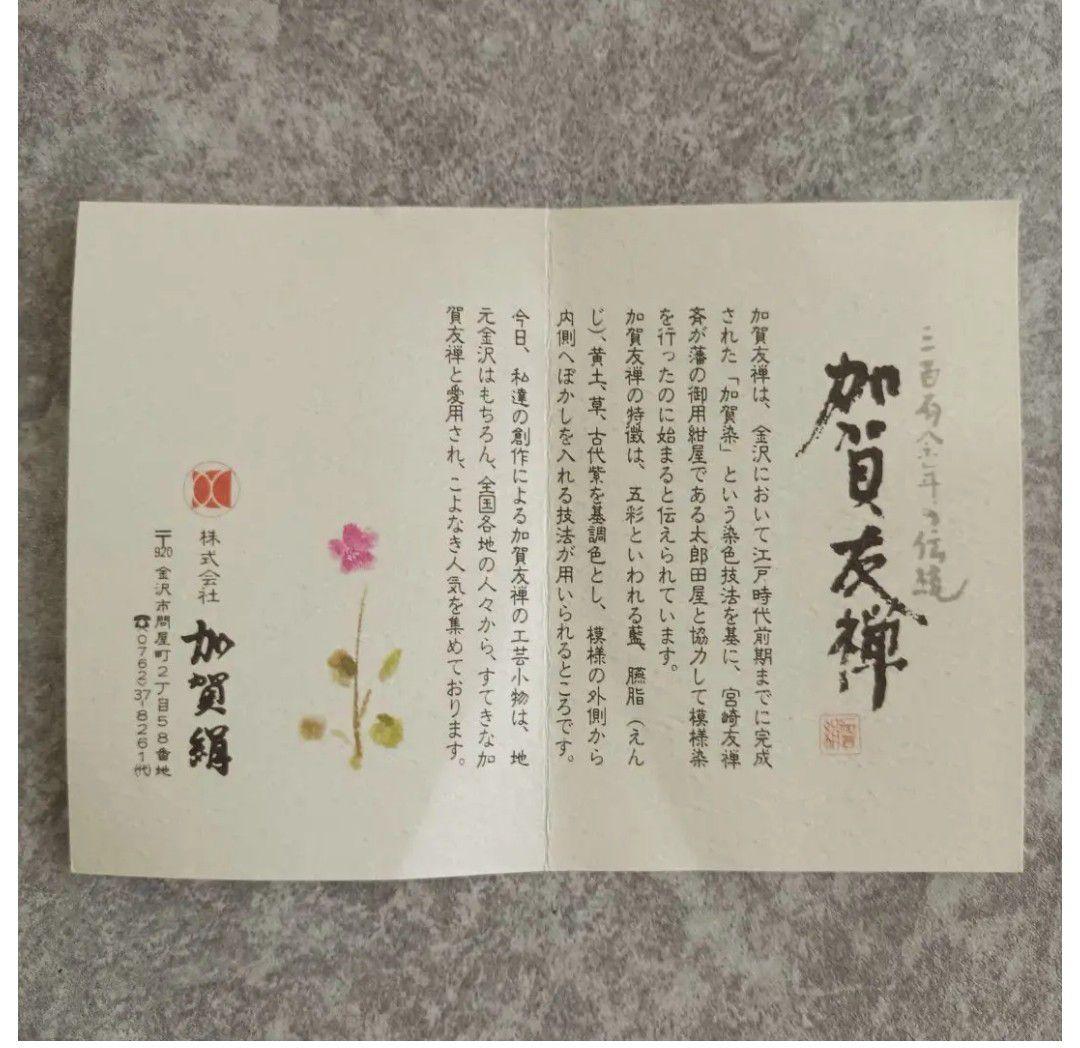 三百有余年の伝統
加賀友禅
加賀友禅は、金沢において江戸時代前期までに完成
された「加賀染」という染色技法を基に、宮崎友禅
斉が藩の御用紺屋である太郎田屋と協力して模様染
を行ったのに始まると伝えられています。
加賀友禅の特徴は、五彩といわれる藍、臙脂（えん
じ）、黄土、草、古代紫を基調色とし、模様の外側から
内側へぼかしを入れる技法が用いられるところです。
今日、私達の創作による加賀友禅の工芸小物は、地
元金沢はもちろん、全国各地の人々から、すてきな加
賀友禅と愛用され、こよなき人気を集めております。
株式会社 加賀絹
〒920 金沢市問屋町2丁目58番地
☎0762)37-8261(代)